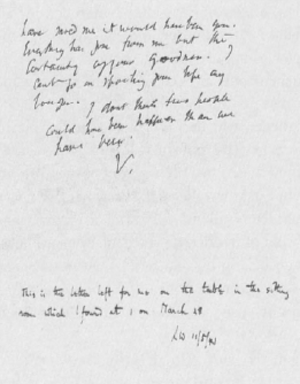 have saved me it would have been you.
Everything has gone from me but the
certainty of your goodness. I
cant go on spoiling your life any
longer. I dont think two people
could have been happier than we
have been.
V.
This is the letter left for me on the table in the sitting
room which I found at 1 on March 28
LW